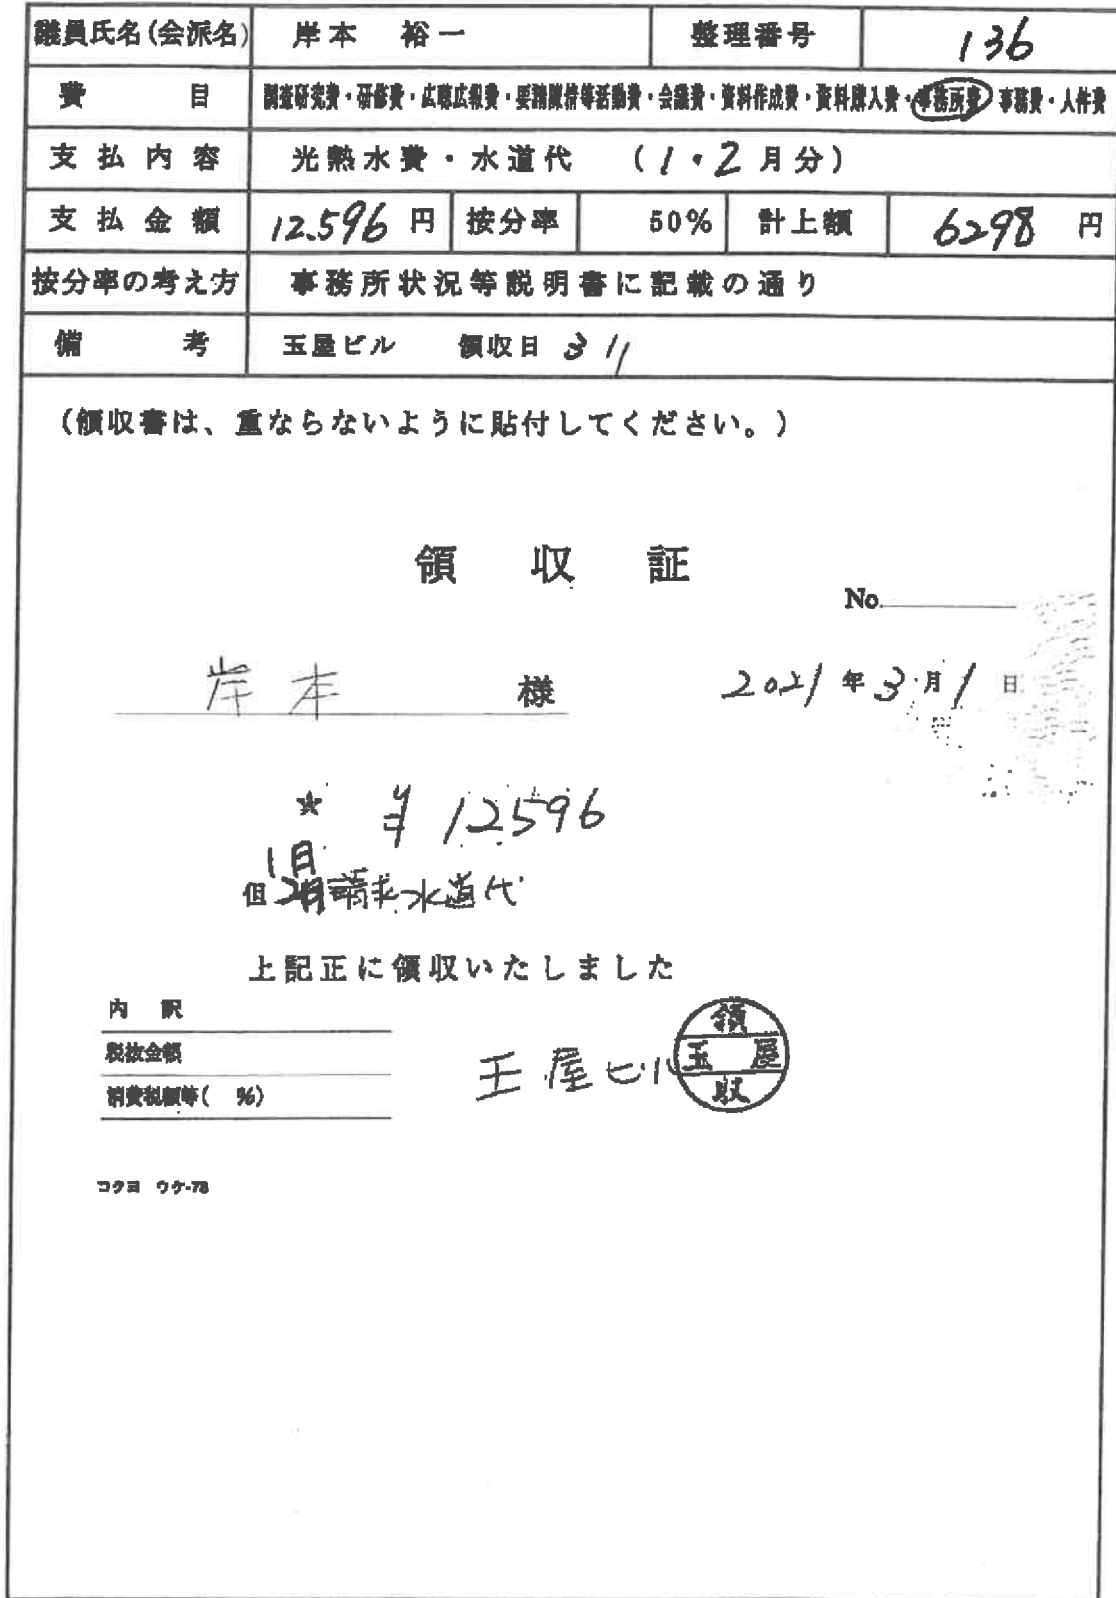 議員氏名(会派名) 岸本 裕一 整理番号 136
費目 調査研究費・研修費・広聴広報費・要請陳情等活動費・会議費・資料作成費・資料購入費・事務所費・事務費・人件費
支払内容 光熱水費・水道代 (1・2月分)
支払金額 12,596円 按分率 50% 計上額 6298円
按分率の考え方 事務所状況等説明書に記載の通り
備考 玉屋ビル 領収日 3/1
(領収書は、重ならないように貼付してください。)
領収証
No.
岸本 様 2021年3月1日
★ ¥12596
1月
但 2月請求水道代
上記正に領収いたしました
内訳
税抜金額
消費税額等( %)
玉屋ビル
領
玉屋
収
コクヨ ウケ-78